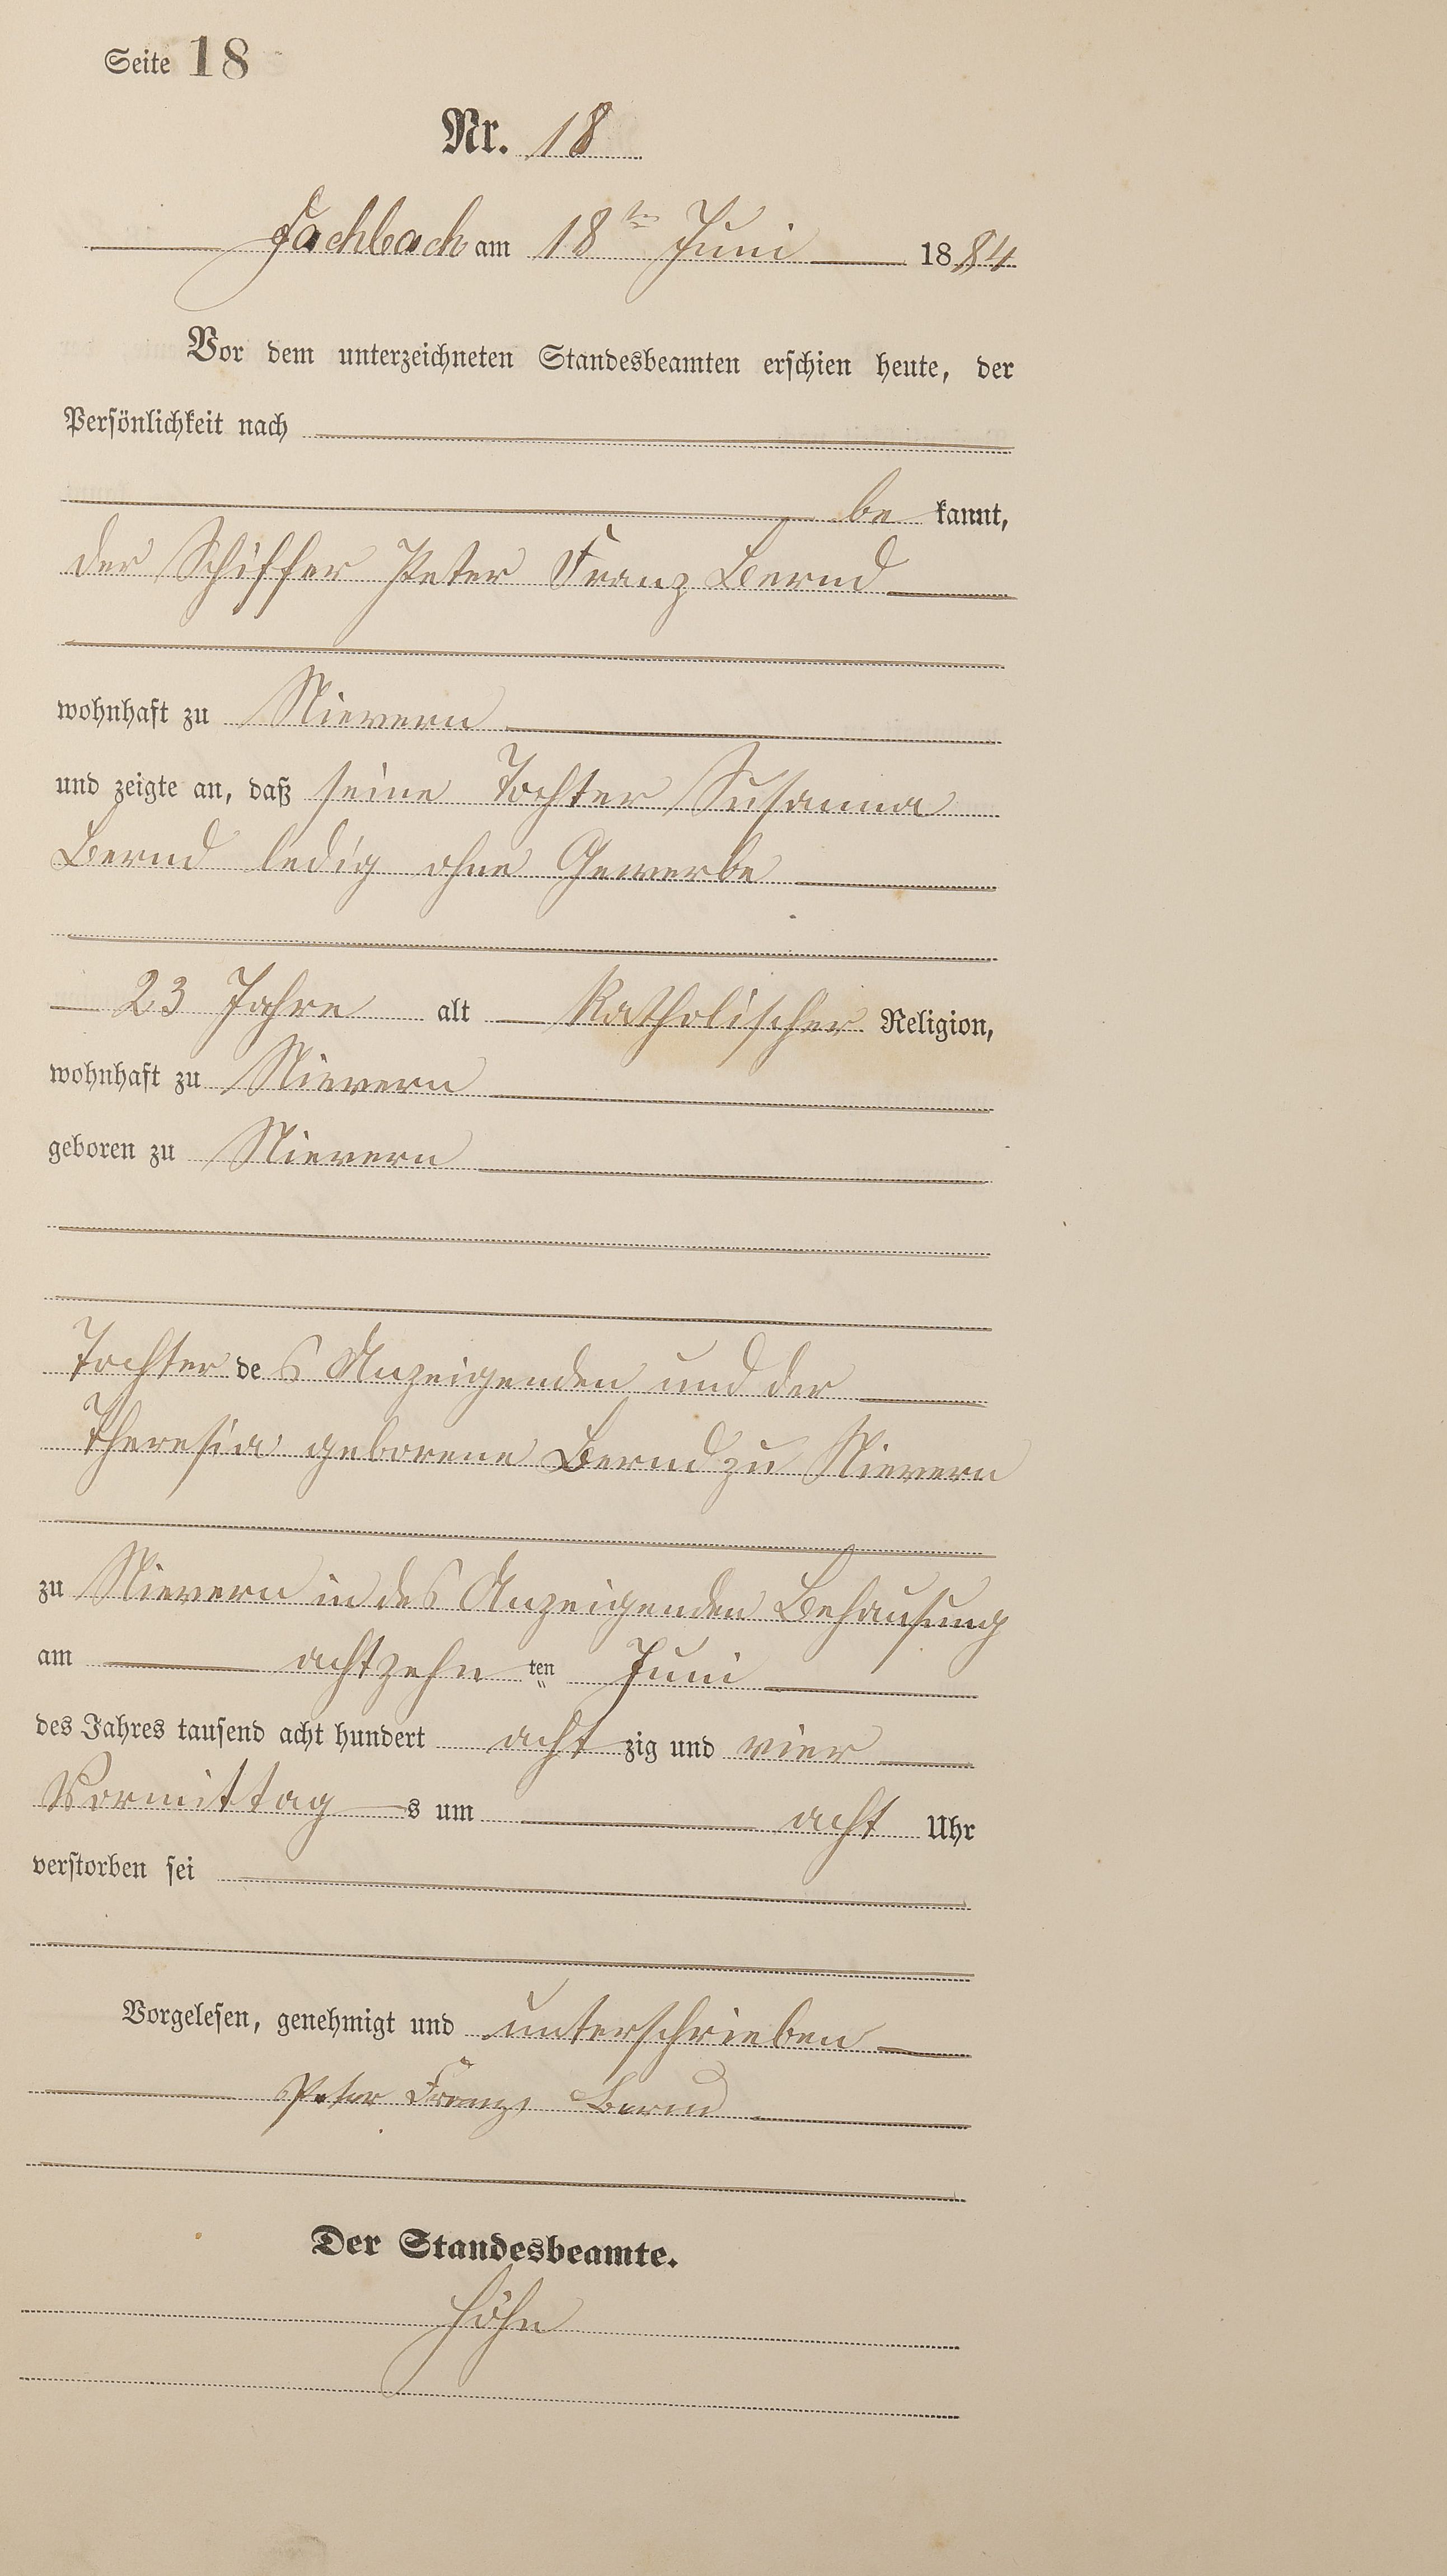 Seite 18
Nr. 18
Fachbach am 18ten Juni 1884
Vor dem unterzeichneten Standesbeamten erschien heute, der
Persönlichkeit nach
be kannt,
der Schiffer Peter Franz Bernd
wohnhaft zu Nievern
und zeigte an, daß seine Tochter Susanna
Bernd ledig ohne Gewerbe
23 Jahre alt Katholischer Religion,
wohnhaft zu Nievern
geboren zu Nievern
Tochter des Anzeigenden und der
Theresia geborene Bernd zu Nievern
zu Nievern in des Anzeigenden Behausung
am achtzehn ten Juni
des Jahres tausend acht hundert acht zig und vier
Vormittag s um acht Uhr
verstorben sei
Vorgelesen, genehmigt und unterschrieben
Peter Franz Bernd
Der Standesbeamte.
Höhn